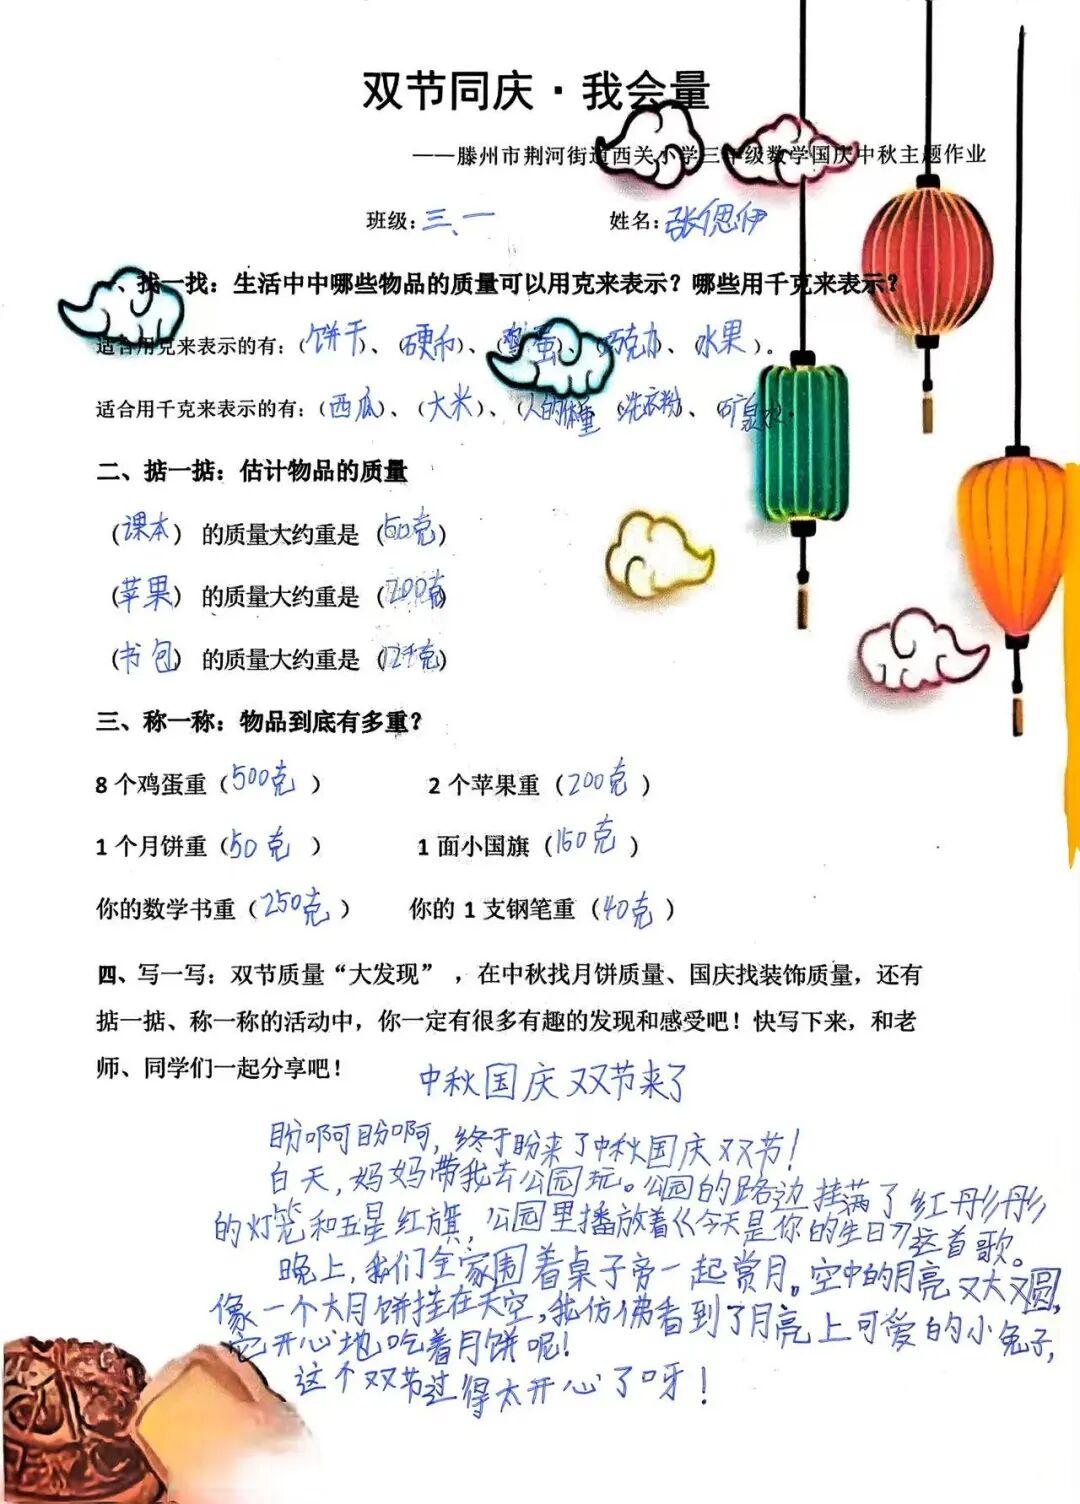 双节同庆·我会量
——滕州市荆河街道西关小学三年级数学国庆中秋主题作业
班级:三、一 姓名:张偲伊
、找一找：生活中中哪些物品的质量可以用克来表示？哪些用千克来表示？
适合用克来表示的有：（饼干）、（硬币）、（鸡蛋）、（巧克力）、（水果）。
适合用千克来表示的有：（西瓜）、（大米）、（人的体重（洗衣粉）、（矿泉水
二、掂一掂：估计物品的质量
（课本） 的质量大约重是（50克）
（苹果） 的质量大约重是（200克）
（书包） 的质量大约重是（12千克）
三、称一称：物品到底有多重？
8 个鸡蛋重（500克 ） 2 个苹果重（200克 ）
1 个月饼重（50 克 ） 1 面小国旗（150克 ）
你的数学书重（250克 ） 你的 1 支钢笔重（40克 ）
四、写一写：双节质量“大发现”，在中秋找月饼质量、国庆找装饰质量，还有
掂一掂、称一称的活动中，你一定有很多有趣的发现和感受吧！快写下来，和老
师、同学们一起分享吧！
中秋国庆双节来了
盼啊盼啊，终于盼来了中秋国庆双节！
白天，妈妈带我去公园玩。公园的路边挂满了红彤彤
的灯笼和五星红旗，公园里播放着《今天是你的生日》这首歌。
晚上，我们全家围着桌子旁一起赏月。空中的月亮又大又圆，
像一个大月饼挂在天空，我仿佛看到了月亮上可爱的小兔子，
它开心地吃着月饼呢！
这个双节过得太开心了呀！